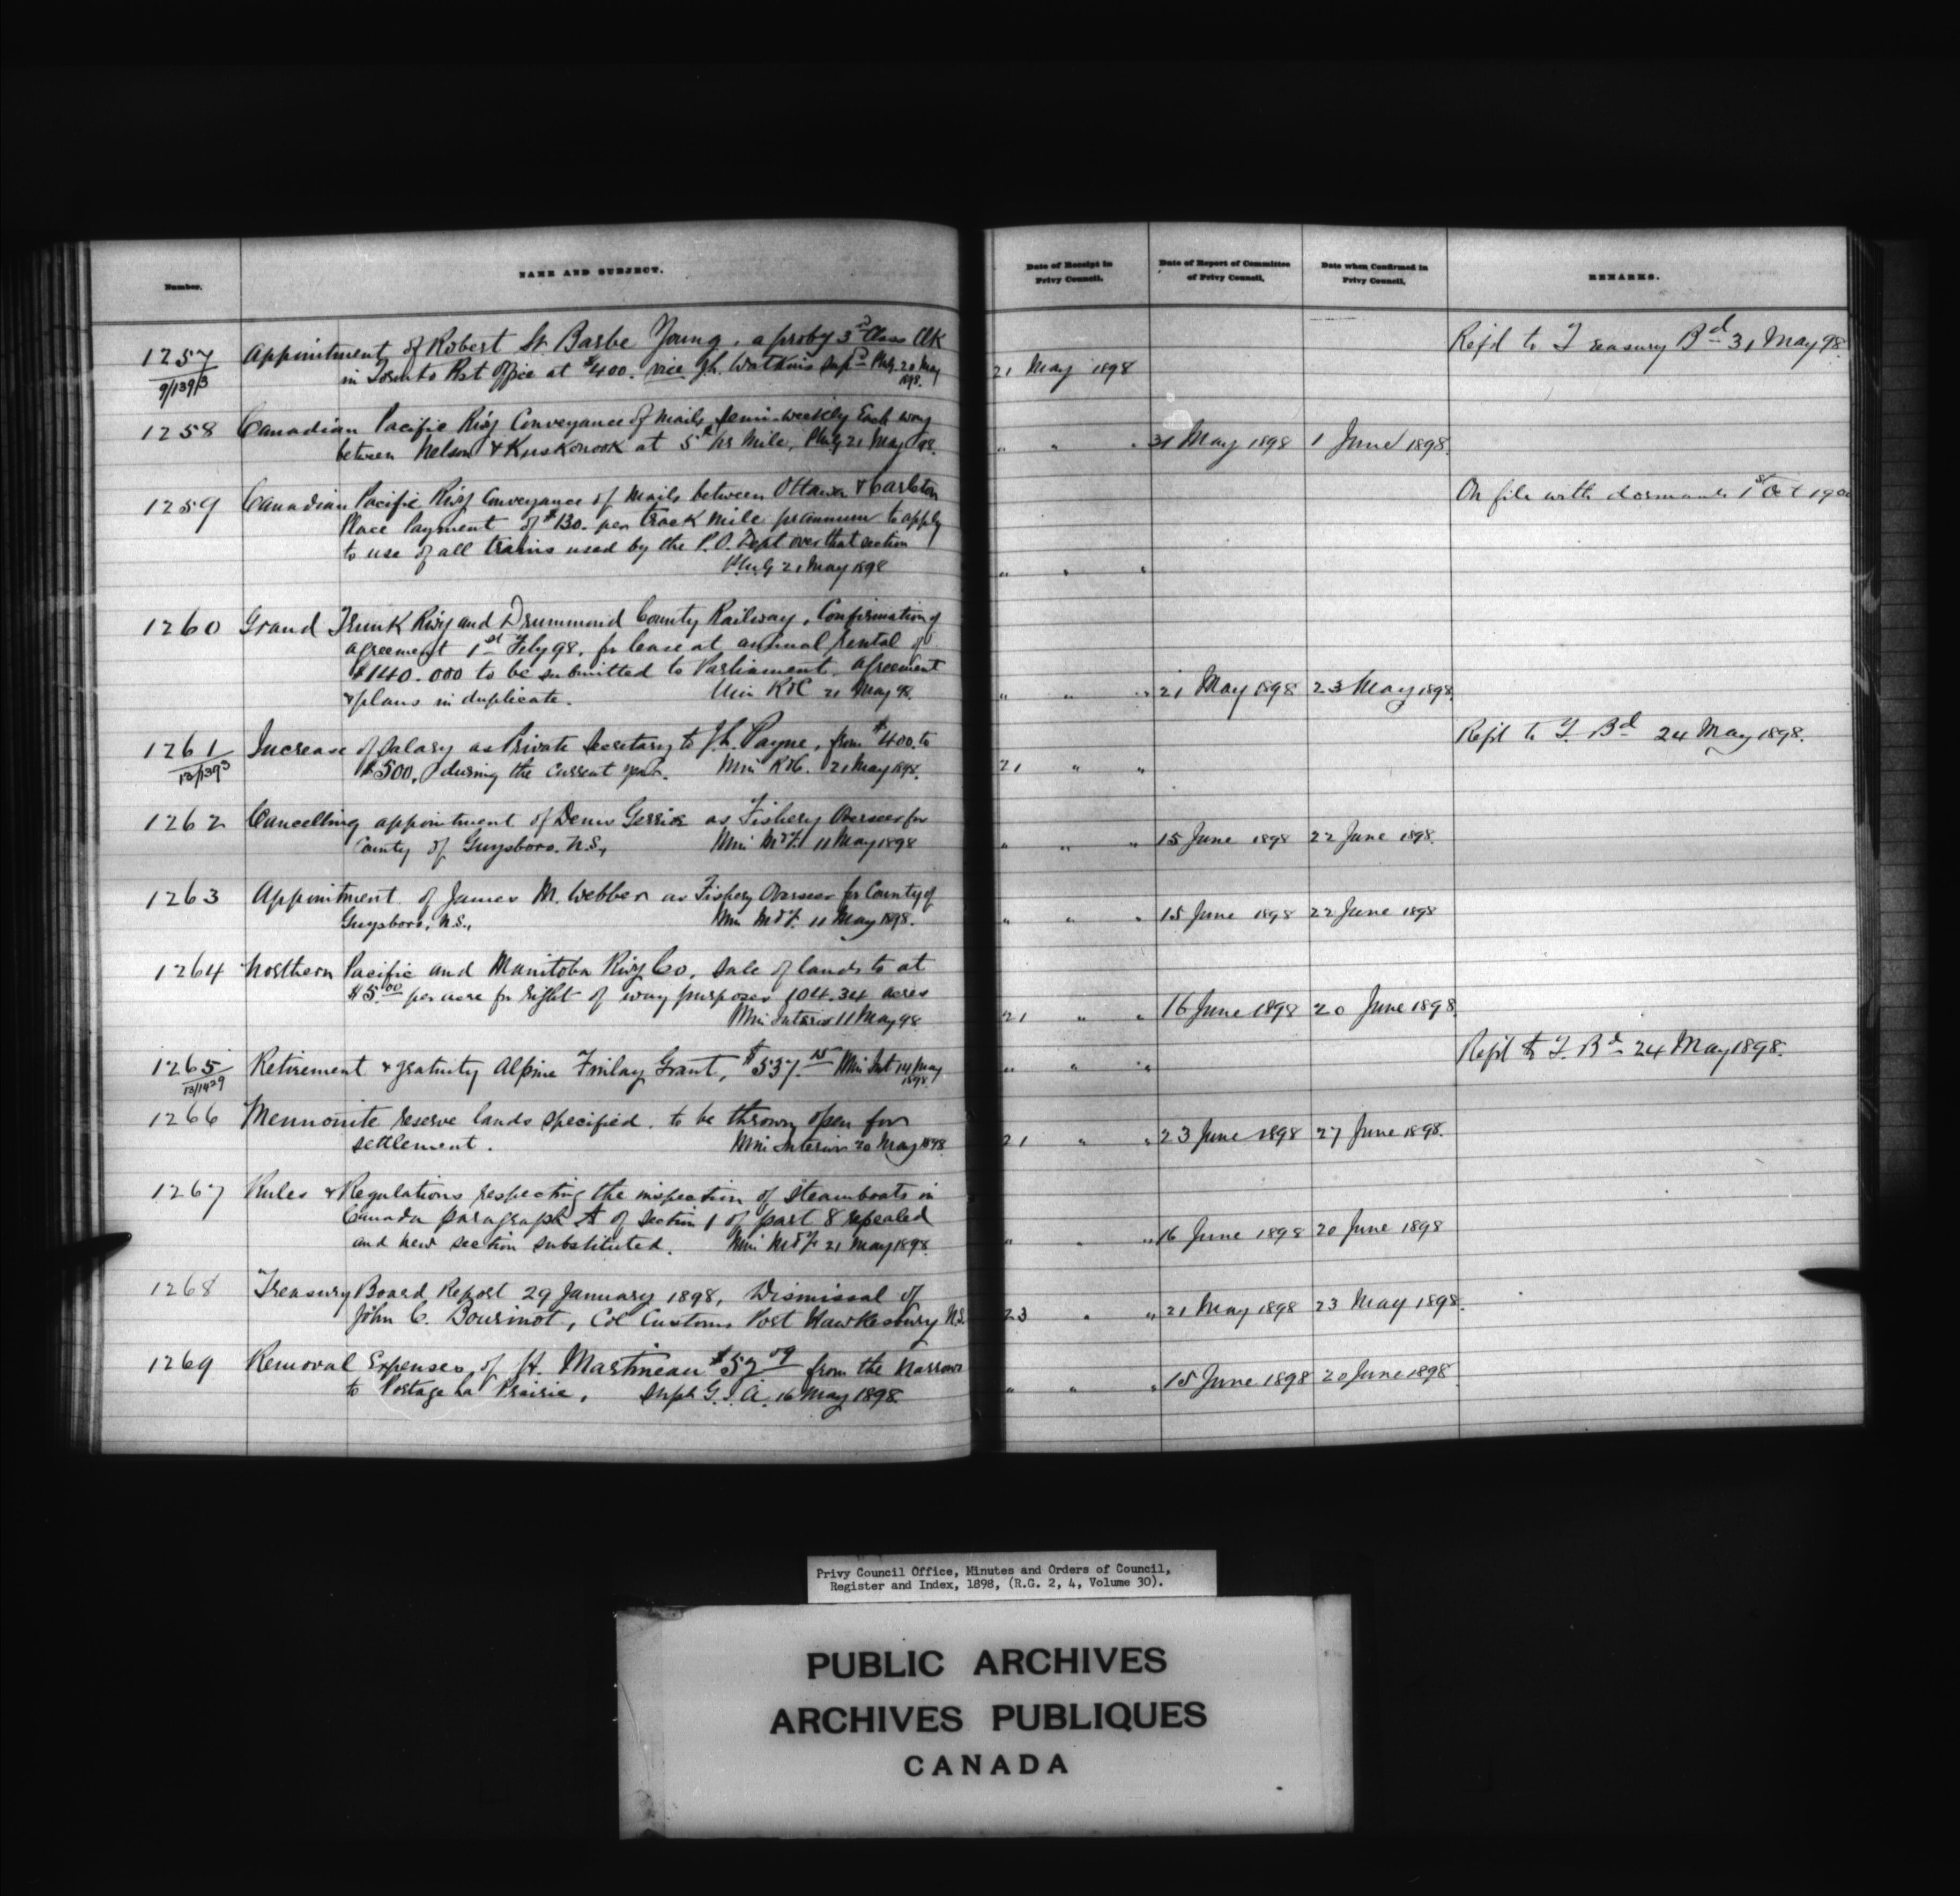 Number.
NAME AND SUBJECT.
Date of Receipt in Privy Council.
Date of Report of Committee of Privy Council.
Date when Confirmed in Privy Council.
REMARKS.
1257 Appointment of Robert St. Barbe Young, a proby 3rd Class Clk
Refd to Treasury Bd 31 May 98
9/1393 in Toronto Post Office at $400. vice J.L. Watkins PMG. 20 May 1898. 21 May 1898
1258 Canadian Pacific Rwy Conveyance of Mails, Semi-weekly Each way
between Nelson & Kuskonook at 5c pr Mile, PMG 21 May 98. " " " 31 May 1898 1 June 1898.
1259 Canadian Pacific Rwy Conveyance of Mails between Ottawa & Carleton
On file with dormants 1st Oct 1900
Place Payment of $130. per track mile pr annum to apply
to use of all trains used by the P.O. Dept over that section
PMG 21 May 1898 " " "
1260 Grand Trunk Rwy and Drummond County Railway, Confirmation of
agreement 1st Feby 98, for lease at annual rental of
$140.000 to be submitted to Parliament. agreement
& plans in duplicate. Min R&C 21 May 98 " " " 21 May 1898 23 May 1898
1261 Increase of Salary as Private Secretary to J.L. Payne, from $400. to
Refd to T. Bd 24 May 1898.
13/1393 $500, during the current year. Min R&C. 21 May 1898. 21 " "
1262 Cancelling appointment of Denis Gerrior as Fishery Overseer for
County of Guysboro. N.S., Min M&F. 11 May 1898 " " " 15 June 1898 22 June 1898.
1263 Appointment of James M. Webber as Fishery Overseer for County of
Guysboro, N.S., Min M&F. 11 May 1898. " " " 15 June 1898 22 June 1898
1264 Northern Pacific and Manitoba Rwy Co. Sale of lands to at
$5.00 per acre for right of way purposes 104.34 acres
Min Interior 11 May 98 21 " " 16 June 1898 20 June 1898.
1265 Retirement & gratuity Alpine Finlay Grant, $537.15 Min Int 14 May 1898 " " "
Refd to T. Bd 24 May 1898.
13/1429
1266 Mennonite reserve lands specified. to be thrown open for
settlement. Min Interior 20 May 1898 21 " " 23 June 1898 27 June 1898.
1267 Rules & Regulations respecting the inspection of Steamboats in
Canada paragraph A of Section 1 of part 8 repealed
and new section substituted. Min M&F 21 May 1898. " " " 16 June 1898 20 June 1898
1268 Treasury Board Report 29 January 1898, Dismissal of
John C. Bourinot, Col Customs Port Hawkesbury N.S. 23 " " 21 May 1898 23 May 1898.
1269 Removal Expenses of H. Martineau $52.09 from the Narrows
to Portage La Prairie, Supt G. I. A. 16 May 1898. " " " 15 June 1898 20 June 1898
Privy Council Office, Minutes and Orders of Council,
Register and Index, 1898, (R.G. 2, 4, Volume 30).
PUBLIC ARCHIVES
ARCHIVES PUBLIQUES
CANADA